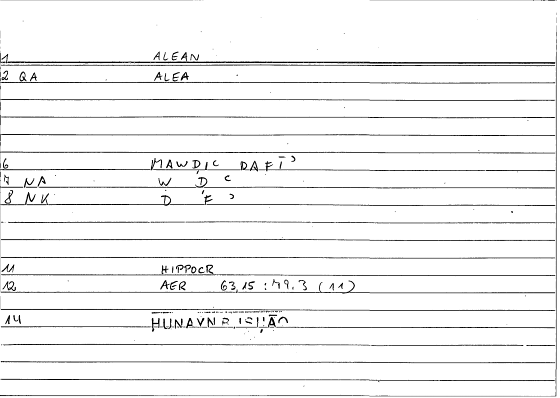 1 ALEAN
2 QA ALEA
6 MAWḌIʿ DAFĪʾ
7 NA W Ḍ ʿ
8 NK D F ʾ
11 HIPPOCR
12 AER 63,15 : 49.3 (11)
14